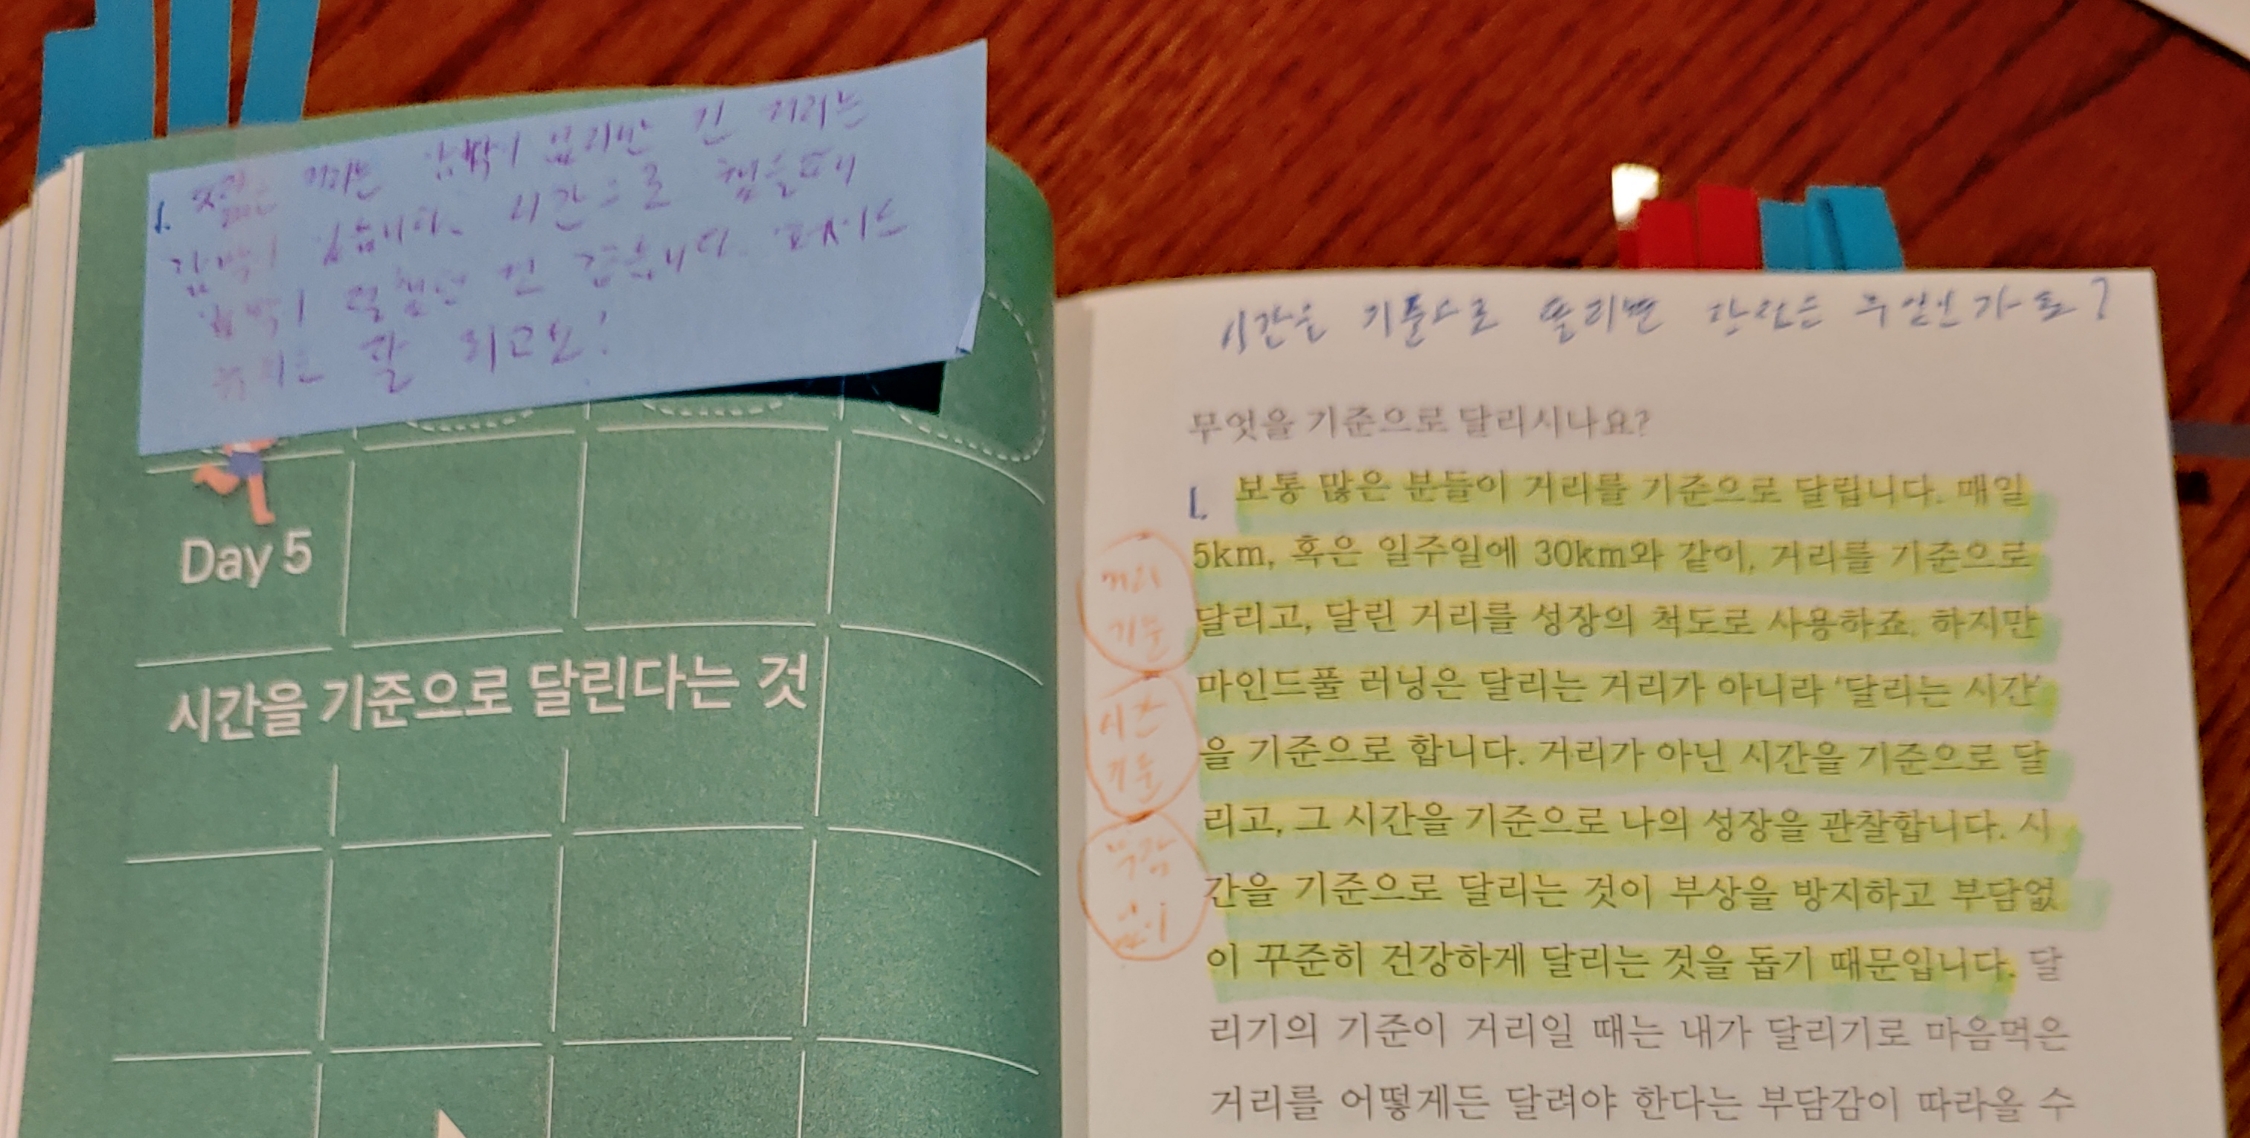 1. 짧은 거리는 압박이 없지만 긴 거리는
압박이 있습니다. 시간으로 했을때
압박이 덜했던 것 같습니다. 페이스
유지는 잘 되고요!
Day 5
시간을 기준으로 달린다는 것
시간을 기준으로 달리면 장점은 무엇인가요?
무엇을 기준으로 달리시나요?
1. 보통 많은 분들이 거리를 기준으로 달립니다. 매일
5km, 혹은 일주일에 30km와 같이, 거리를 기준으로
달리고, 달린 거리를 성장의 척도로 사용하죠. 하지만
마인드풀 러닝은 달리는 거리가 아니라 ‘달리는 시간’
을 기준으로 합니다. 거리가 아닌 시간을 기준으로 달
리고, 그 시간을 기준으로 나의 성장을 관찰합니다. 시
간을 기준으로 달리는 것이 부상을 방지하고 부담없
이 꾸준히 건강하게 달리는 것을 돕기 때문입니다. 달
리기의 기준이 거리일 때는 내가 달리기로 마음먹은
거리를 어떻게든 달려야 한다는 부담감이 따라올 수
거리
기준
시간
기준
부담
없이